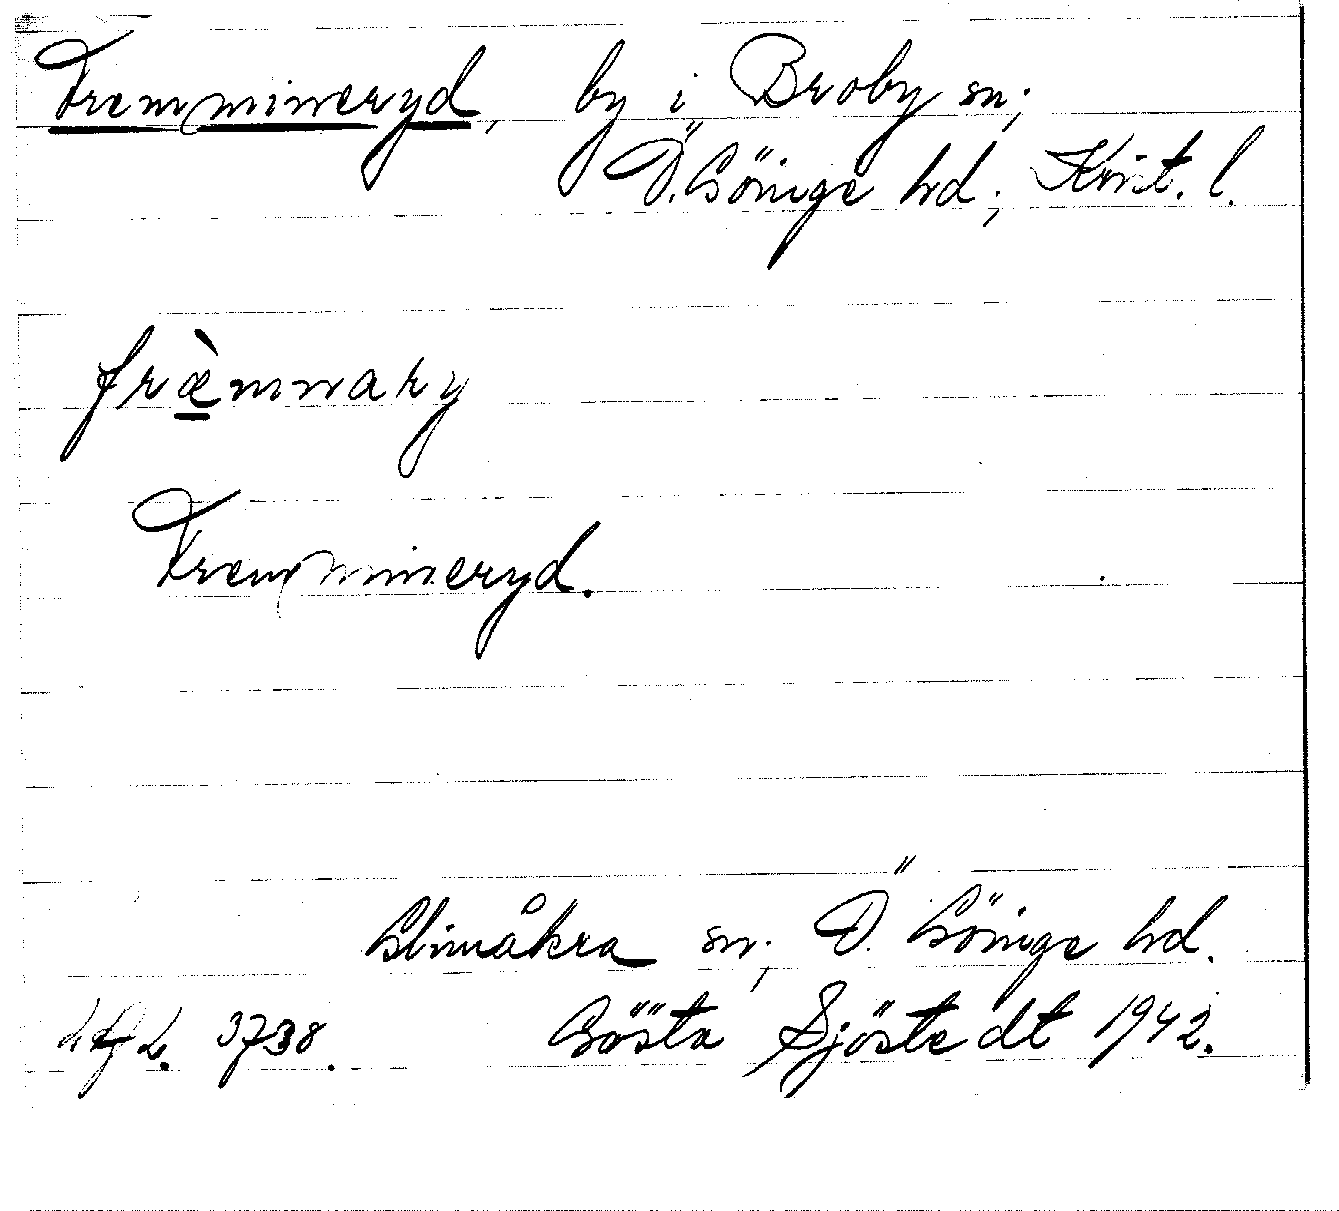 Fremmineryd, by i Broby sn;
Ö. Göinge hd; Krist. l.
fræ̀mnary
Fremmineryd.
Glimåkra sn; Ö. Göinge hd.
3738. Gösta Sjöstedt 1942.